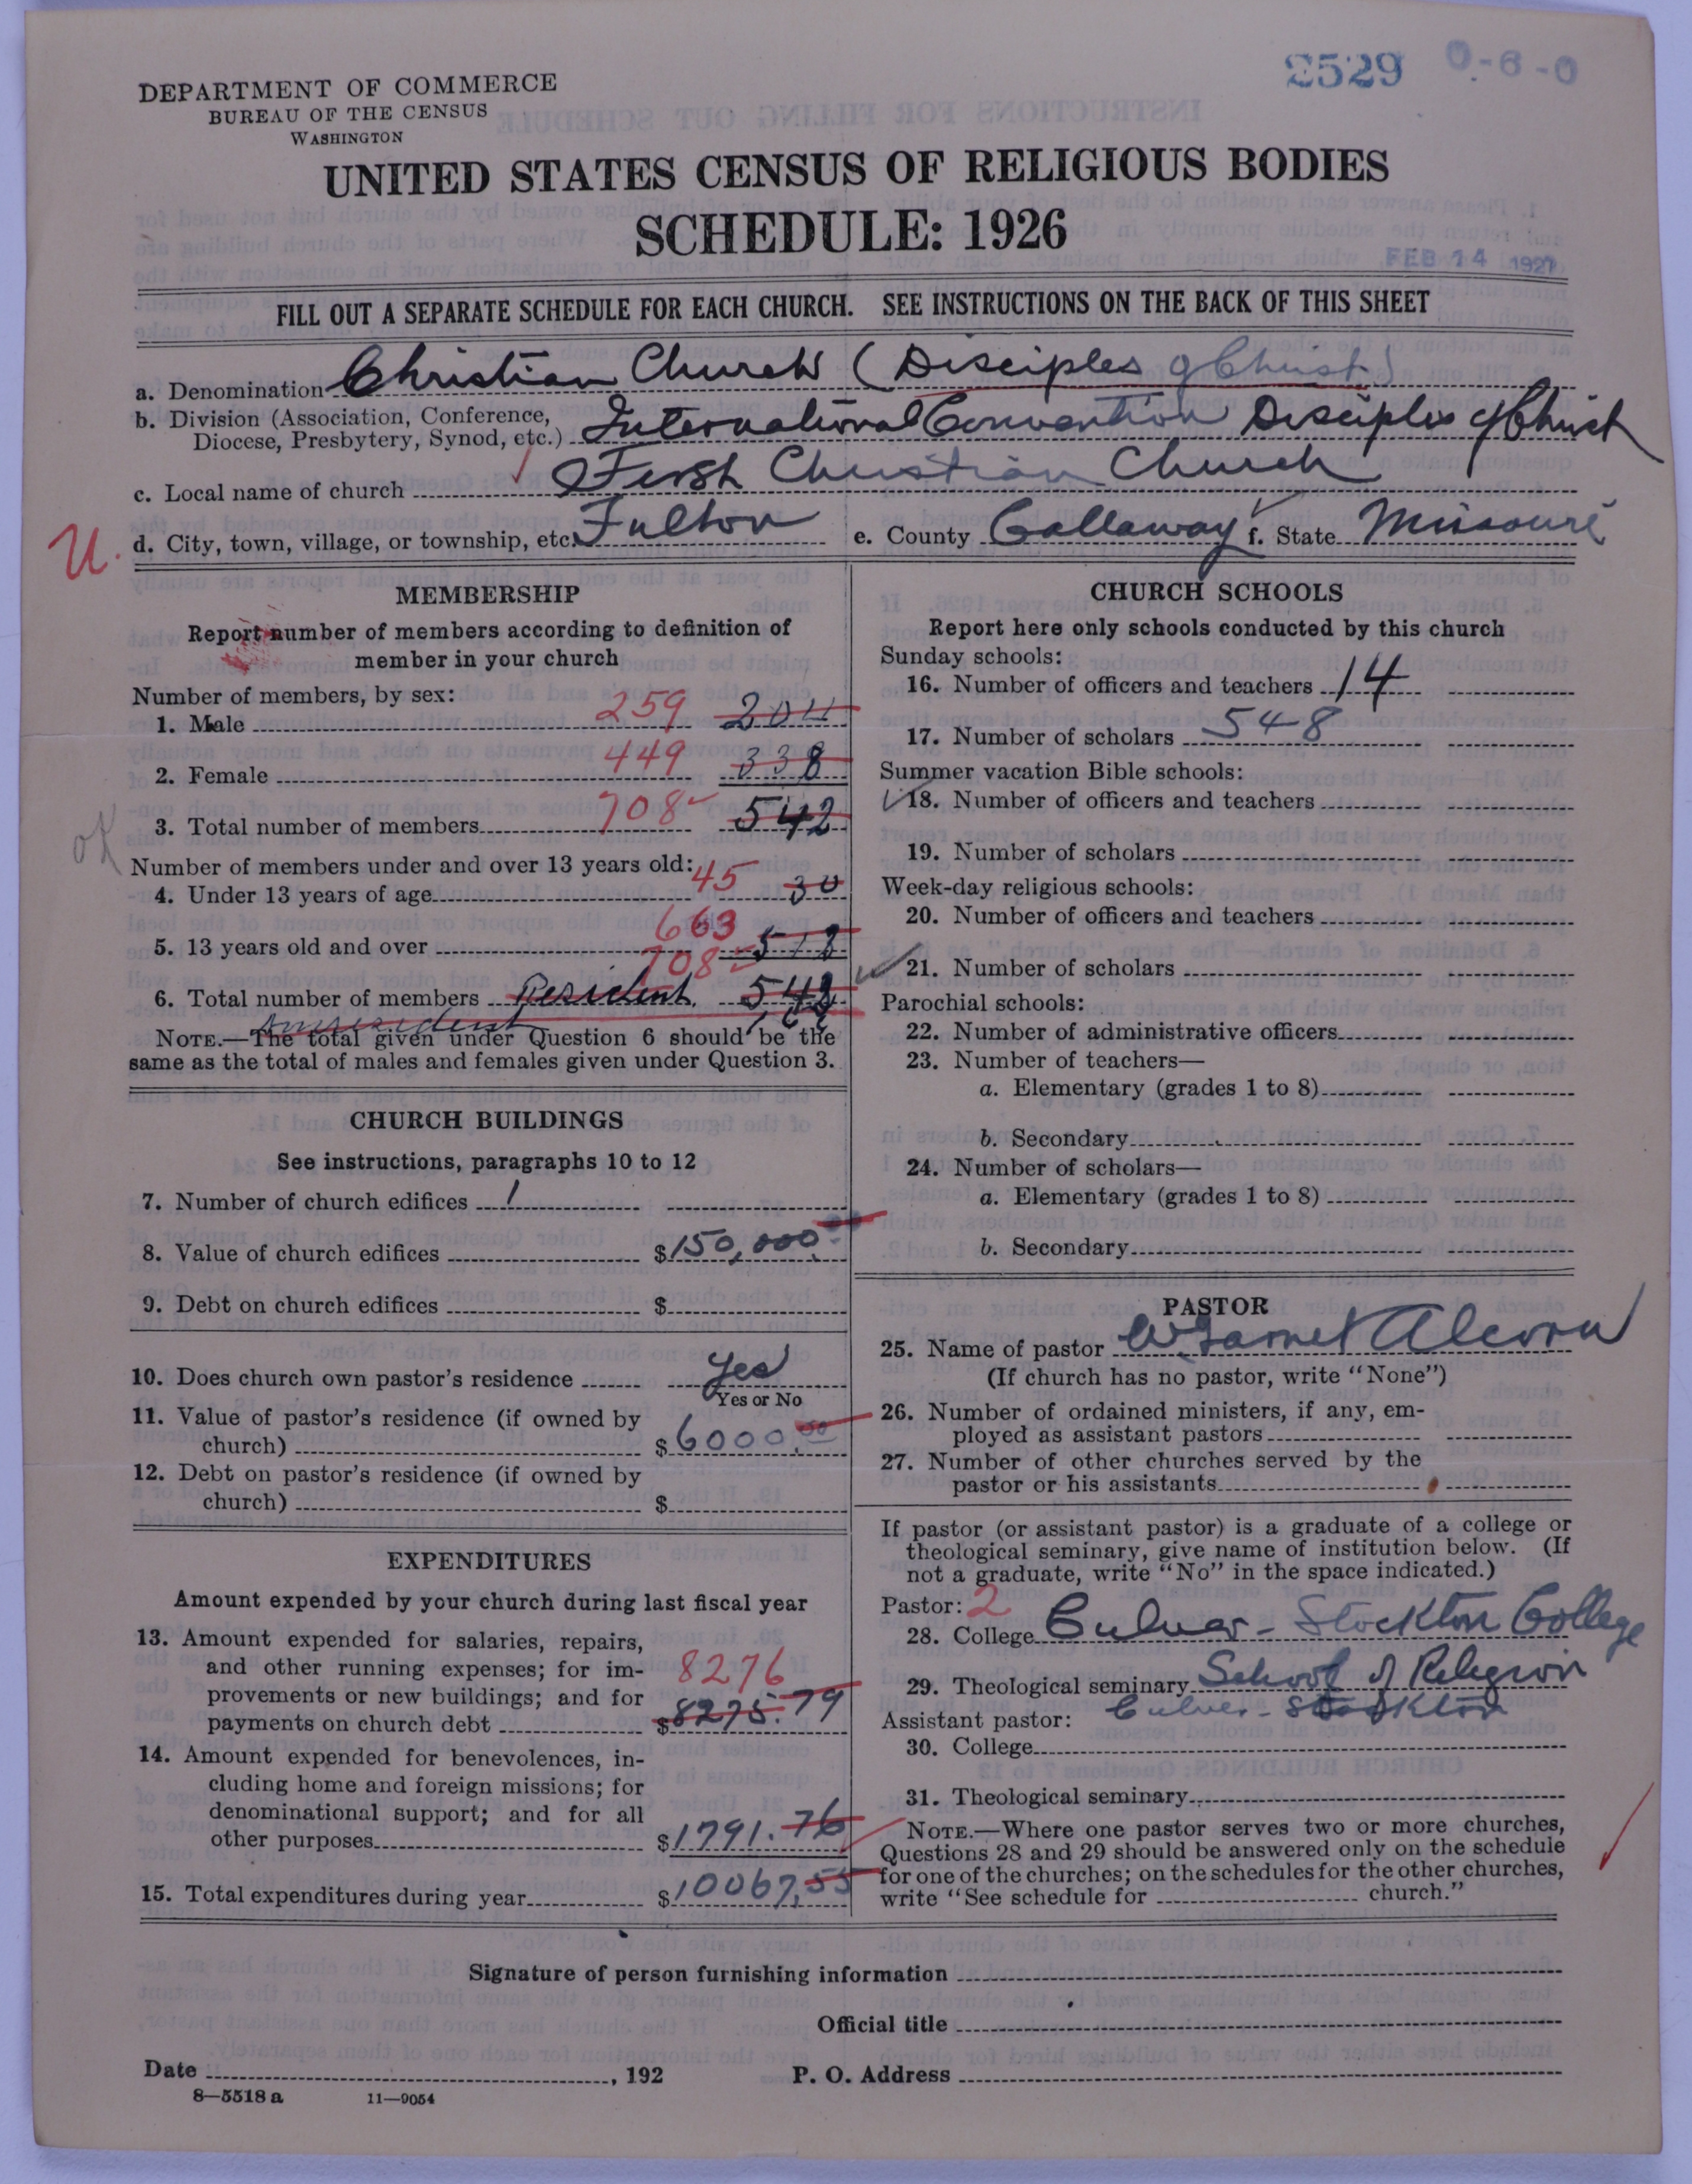 2529 0-6-0
DEPARTMENT OF COMMERCE
BUREAU OF THE CENSUS
WASHINGTON
UNITED STATES CENSUS OF RELIGIOUS BODIES
SCHEDULE: 1926
FEB 14 1927
FILL OUT A SEPARATE SCHEDULE FOR EACH CHURCH. SEE INSTRUCTIONS ON THE BACK OF THIS SHEET
a. Denomination Christian Church (Disciples of Christ)
b. Division (Association, Conference,
Diocese, Presbytery, Synod, etc.) International Convention Disciples of Christ
c. Local name of church First Christian Church
U. d. City, town, village, or township, etc. Fulton e. County Callaway f. State Missouri
MEMBERSHIP
Report number of members according to definition of
member in your church
Number of members, by sex:
1. Male 259 204
2. Female 449 338
3. Total number of members 708 542
ok
Number of members under and over 13 years old:
4. Under 13 years of age 45 30
5. 13 years old and over 663 512
708
6. Total number of members Resident 542
NOTE.—The total given under Question 6 should be the
same as the total of males and females given under Question 3.
CHURCH BUILDINGS
See instructions, paragraphs 10 to 12
7. Number of church edifices 1
8. Value of church edifices $150,000.
9. Debt on church edifices $
10. Does church own pastor's residence Yes
Yes or No
11. Value of pastor's residence (if owned by
church) $6000.00
12. Debt on pastor's residence (if owned by
church) $
EXPENDITURES
Amount expended by your church during last fiscal year
13. Amount expended for salaries, repairs,
and other running expenses; for im- 8276
provements or new buildings; and for
payments on church debt $8275.79
14. Amount expended for benevolences, in-
cluding home and foreign missions; for
denominational support; and for all
other purposes $1791.76
15. Total expenditures during year $10067,55
CHURCH SCHOOLS
Report here only schools conducted by this church
Sunday schools:
16. Number of officers and teachers 14
17. Number of scholars 548
Summer vacation Bible schools:
18. Number of officers and teachers
19. Number of scholars
Week-day religious schools:
20. Number of officers and teachers
21. Number of scholars
Parochial schools:
22. Number of administrative officers
23. Number of teachers—
a. Elementary (grades 1 to 8)
b. Secondary
24. Number of scholars—
a. Elementary (grades 1 to 8)
b. Secondary
PASTOR
25. Name of pastor W. Garnet Alcorn
(If church has no pastor, write "None")
26. Number of ordained ministers, if any, em-
ployed as assistant pastors
27. Number of other churches served by the
pastor or his assistants
If pastor (or assistant pastor) is a graduate of a college or
theological seminary, give name of institution below. (If
not a graduate, write "No" in the space indicated.)
Pastor: 2
28. College Culver-Stockton College
29. Theological seminary School of Religion
Culver-Stockton
Assistant pastor:
30. College
31. Theological seminary
NOTE.—Where one pastor serves two or more churches,
Questions 28 and 29 should be answered only on the schedule
for one of the churches; on the schedules for the other churches,
write "See schedule for church."
Signature of person furnishing information
Official title
Date , 192 P. O. Address
8—5518 a 11—9054